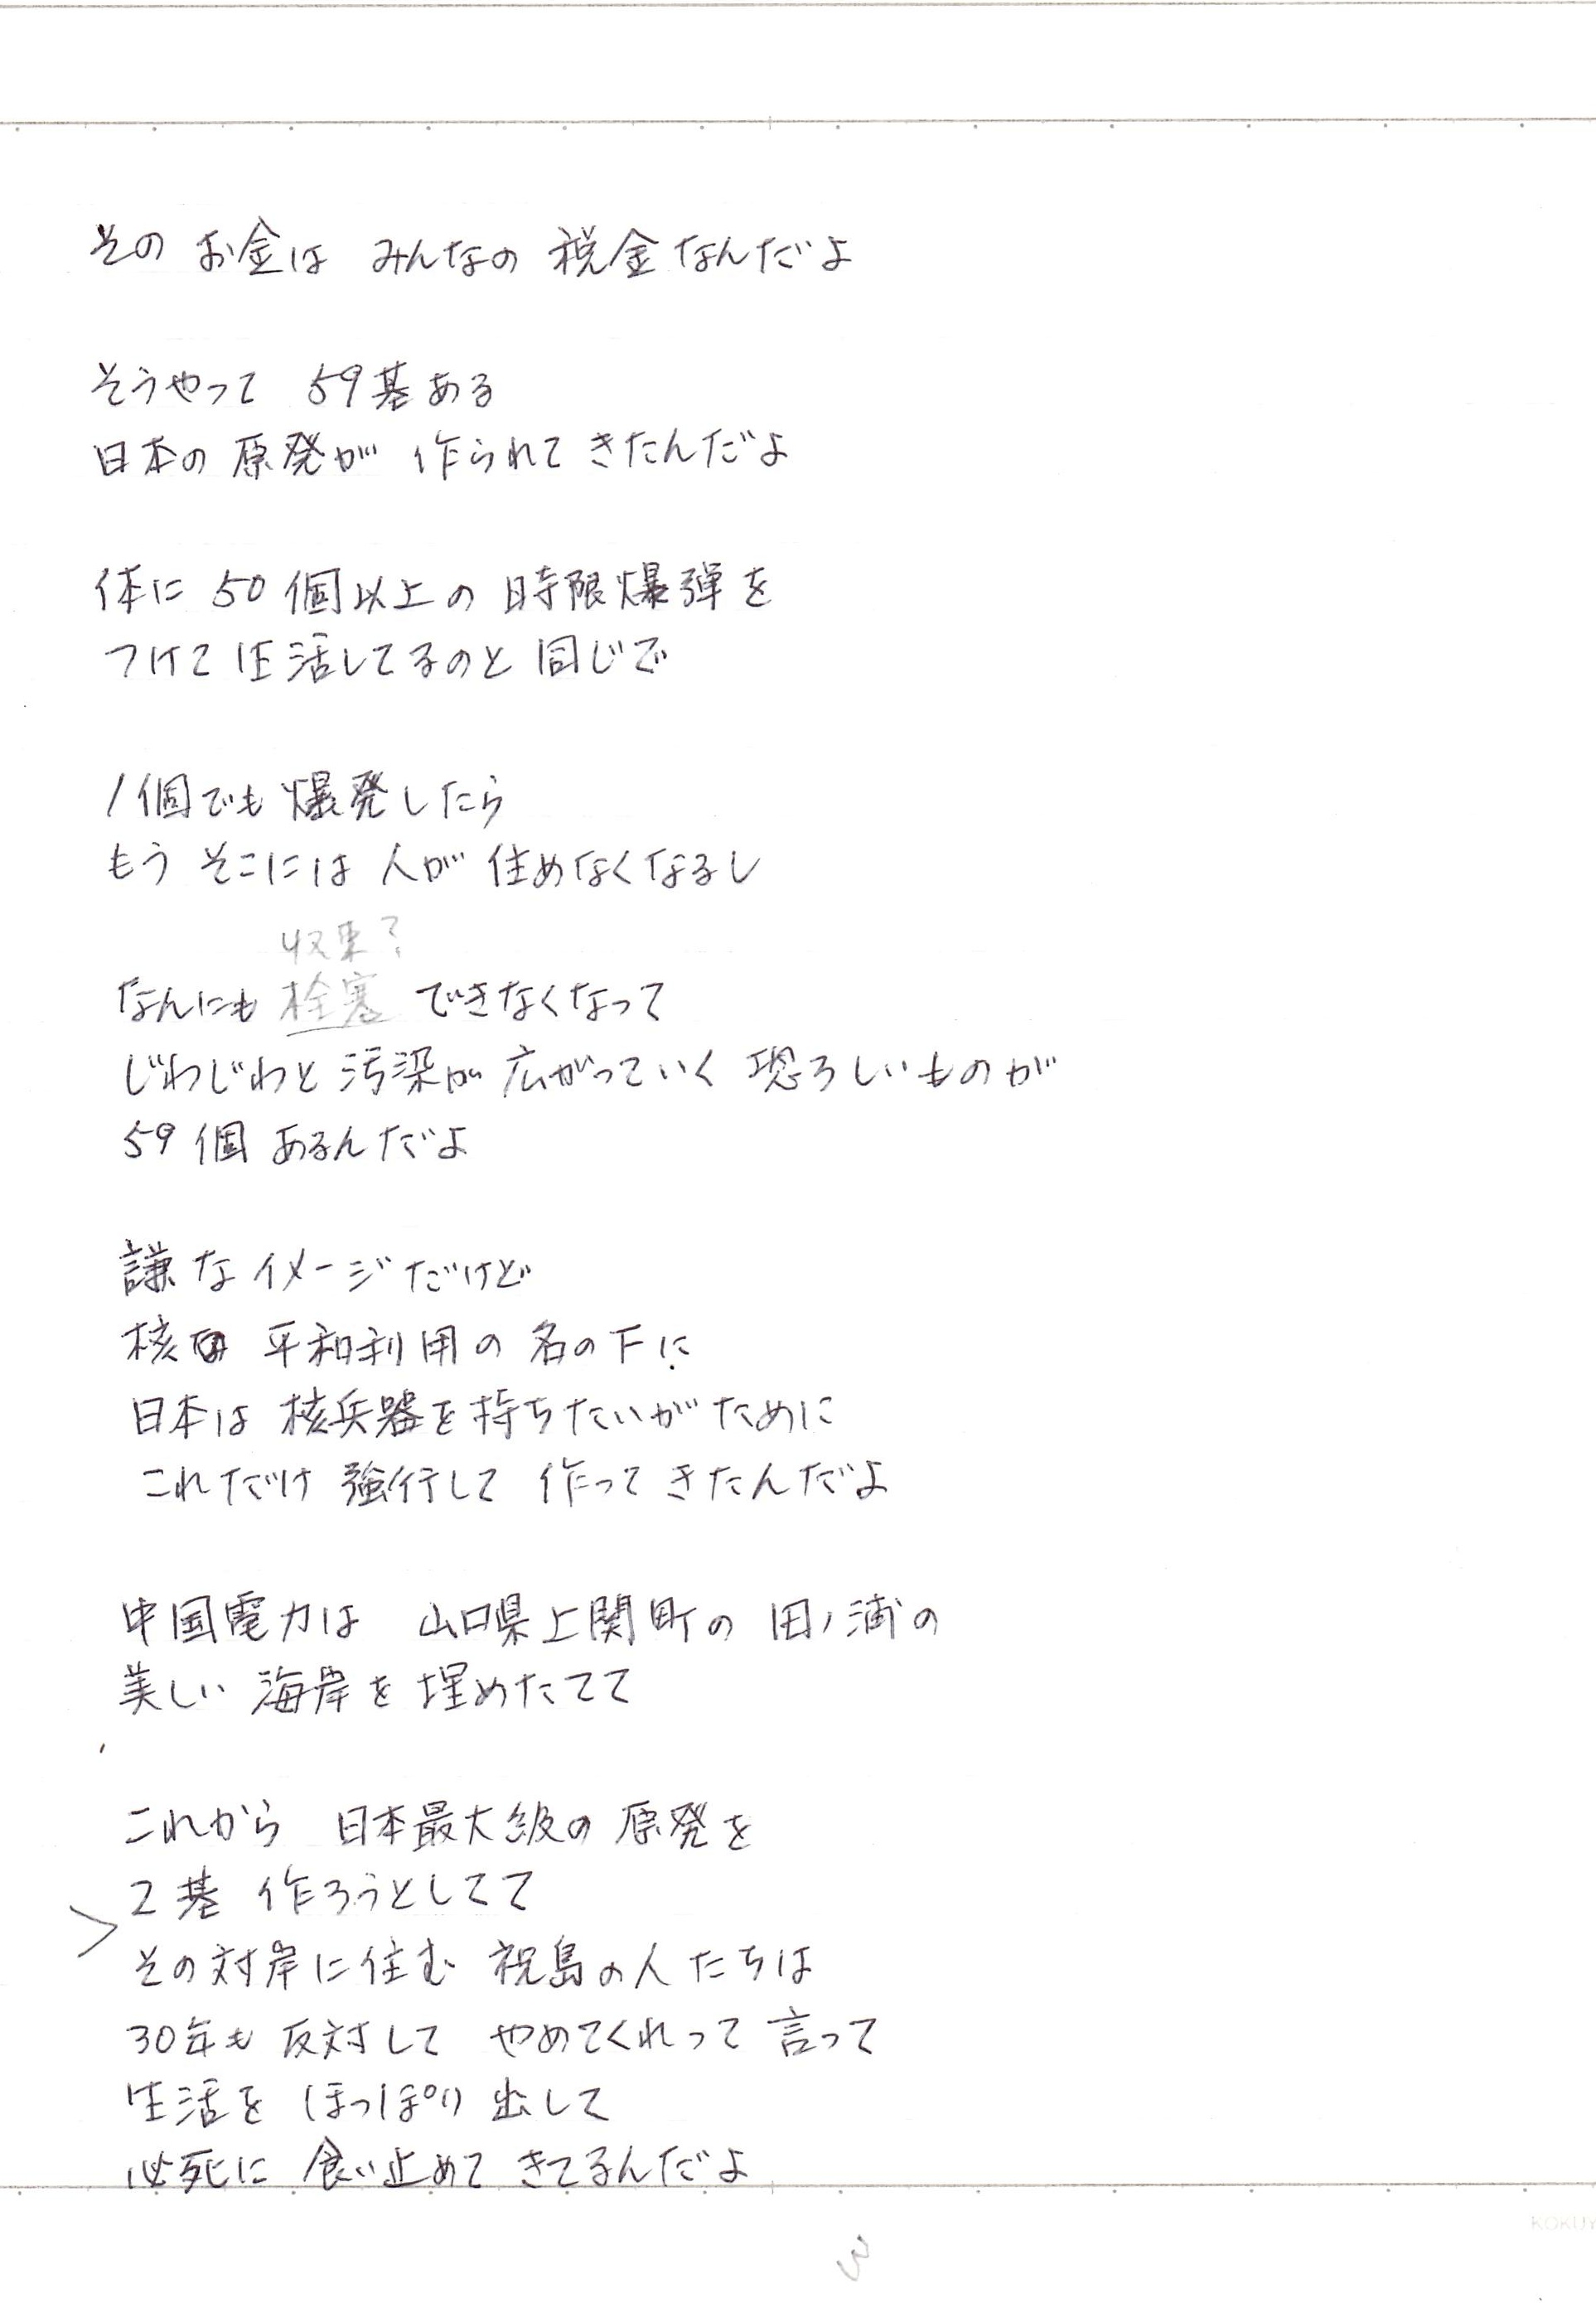 その お金は みんなの 税金なんだよ
そうやって 59基ある
日本の 原発が 作られて きたんだよ
体に 50個以上の 時限爆弾を
つけて 生活してるのと 同じで
1個でも 爆発したら
もう そこには 人が 住めなくなるし
収束?
なんにも 栓塞 できなくなって
じわじわと 汚染が 広がっていく 恐ろしいものが
59個 あるんだよ
謙な イメージだけど
核の 平和利用の 名の下に
日本は 核兵器を 持ちたいが ために
これだけ 強行して 作って きたんだよ
中国電力は 山口県上関町の 田ノ浦の
美しい 海岸を 埋めたてて
これから 日本最大級の 原発を
2基 作ろうとしてて
その対岸に住む 祝島の人 たちは
30年も 反対して やめてくれって 言って
生活を ほっぽり 出して
必死に 食い止めて きてるんだよ
3
KOKUY